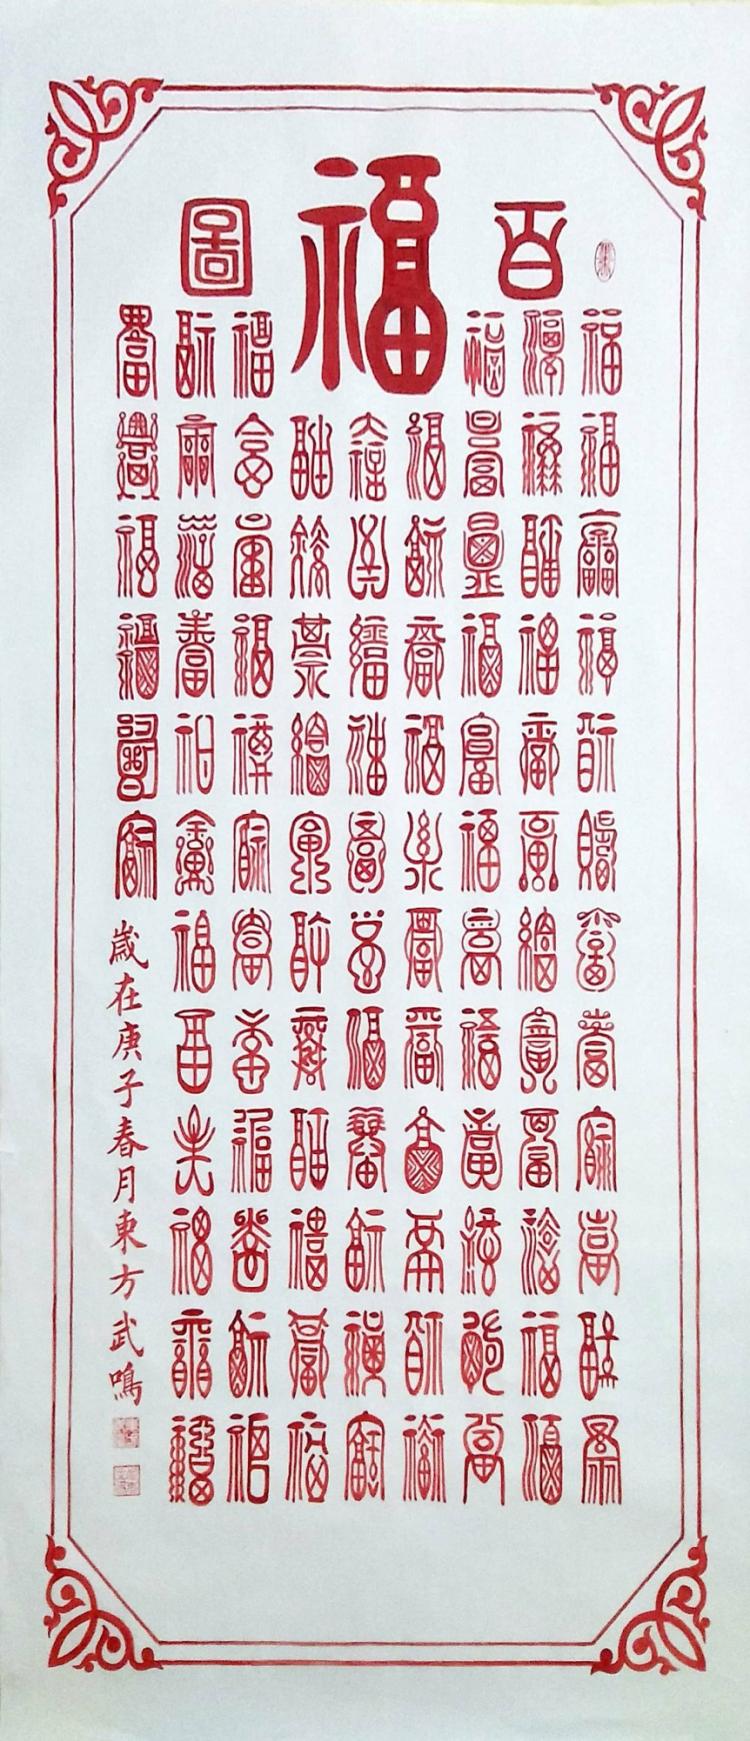 百福圖
福福福福福福福福福福福福
福福福福福福福福福福福福
福福福福福福福福福福福福
福福福福福福福福福福福
福福福福福福福福福福福
福福福福福福福福福福福
福福福福福福福福福福福福
福福福福福福福福福福福福
福福福福福福
歲在庚子春月東方武鳴